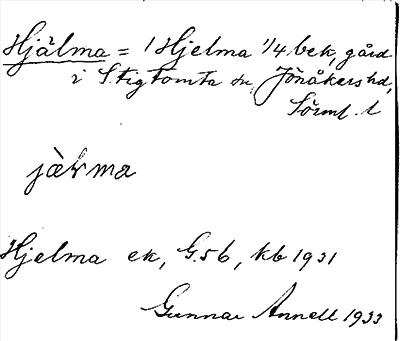 Hjälma = 1 Hjelma 1/4 bek, gård
i Stigtomta sn, Jönåkers hd,
Sörml. l
jàlma
Hjelma ek, G.56, kb 1931
Gunnar Annell 1933